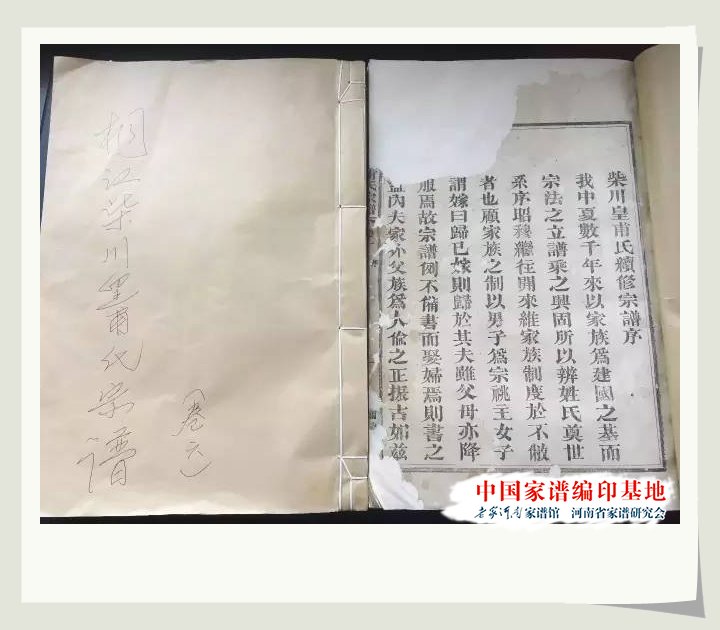 桐江柴川皇甫氏宗譜
(卷六)
柴川皇甫氏續修宗譜序
我中夏數千年來以家族爲建國之基而
宗法之立譜乘之興固所以辨姓氏奠世
系序昭穆繼往開來維家族制度於不敝
者也顧家族之制以男子爲宗祧主女子
謂嫁曰歸已嫁則歸於其夫雖父母亦降
服焉故宗譜例不備書而娶婦焉則書之
蓋內夫家亦父族爲人倫之正振古如茲
中国家谱编印基地
老家河南家谱馆 河南省家谱研究会